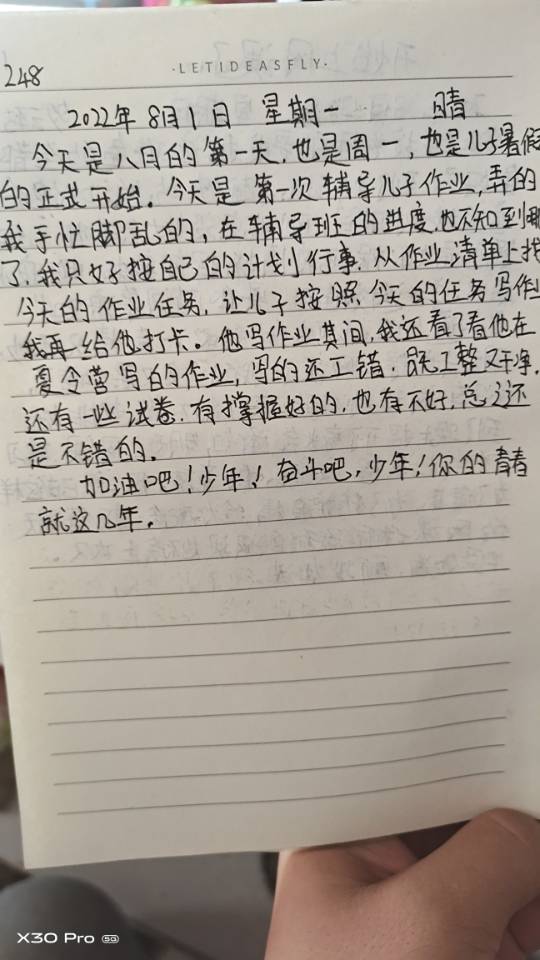 248
·LETIDEASFLY·
2022年8月1日 星期一 晴
今天是八月的第一天,也是周一,也是儿子暑假
的正式开始。今天是第一次辅导儿子作业,弄的
我手忙脚乱的,在辅导班的进度,也不知到哪
了,我只好按自己的计划行事,从作业清单上找
今天的作业任务,让儿子按照今天的任务写作业
我再给他打卡。他写作业其间,我还看了看他在
夏令营写的作业,写的还工错,既工整又干净,
还有一些试卷,有掌握好的,也有不好,总之还
是不错的。
加油吧!少年!奋斗吧,少年!你的青春
就这几年。
X30 Pro 5G